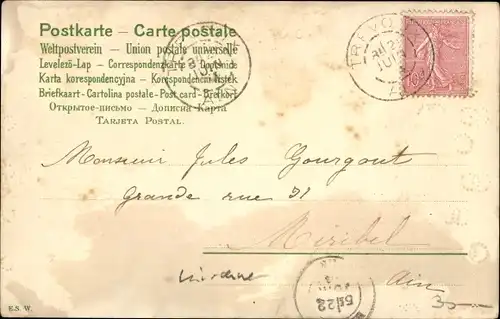 Postkarte – Carte postale
Weltpostverein – Union postale universelle
Levelező-Lap – Correspondenzkarte – Dopisnice
Karta korespondencyjna – Korespondenční lístek
Briefkaart – Cartolina postale – Post card – Brefkort
Открытое письмо – Дописна Карта
Tarjeta Postal.
TREVOUX
AIN
10
Monsieur Jules Gourgout
Grande rue 31
Miribel
Ain
30
E.S.W.